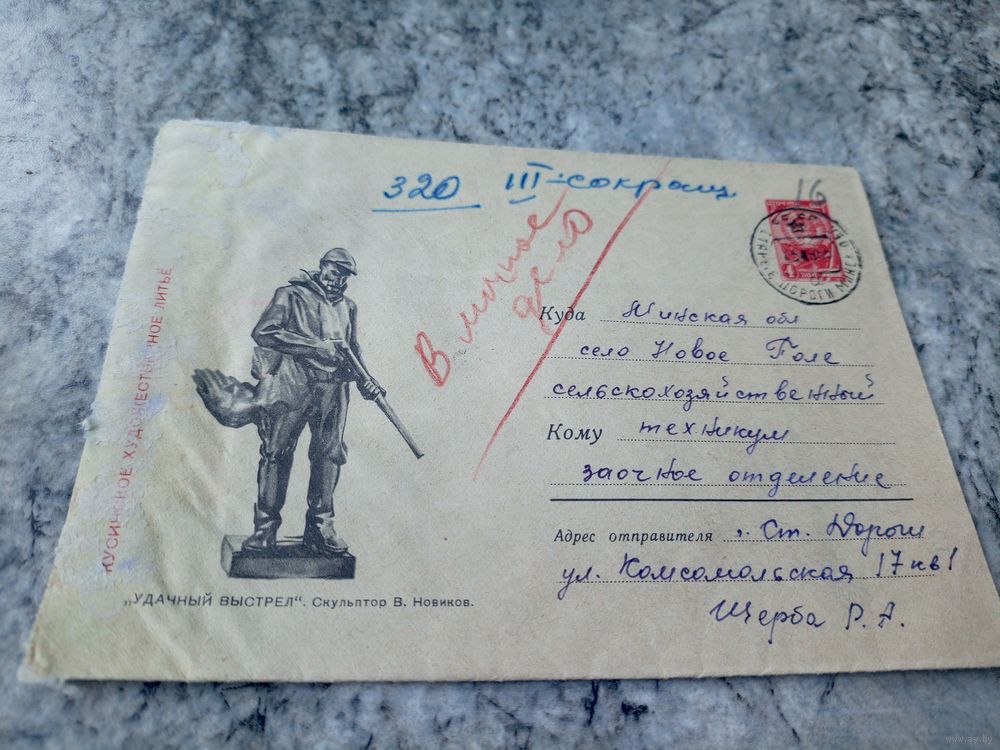 320 III-сокращ
16
В личное
дело
КУСИНСКОЕ ХУДОЖЕСТВЕННОЕ ЛИТЬЕ
Куда Минская обл
село Новое Поле
сельскохозяйственный
Кому техникум
заочное отделение
Адрес отправителя Ст. Дороги
ул. Комсомольская 17 кв 1
Щерба Р. А.
„УДАЧНЫЙ ВЫСТРЕЛ“. Скульптор В. Новиков.
ДОРОГИ
www.ay.by